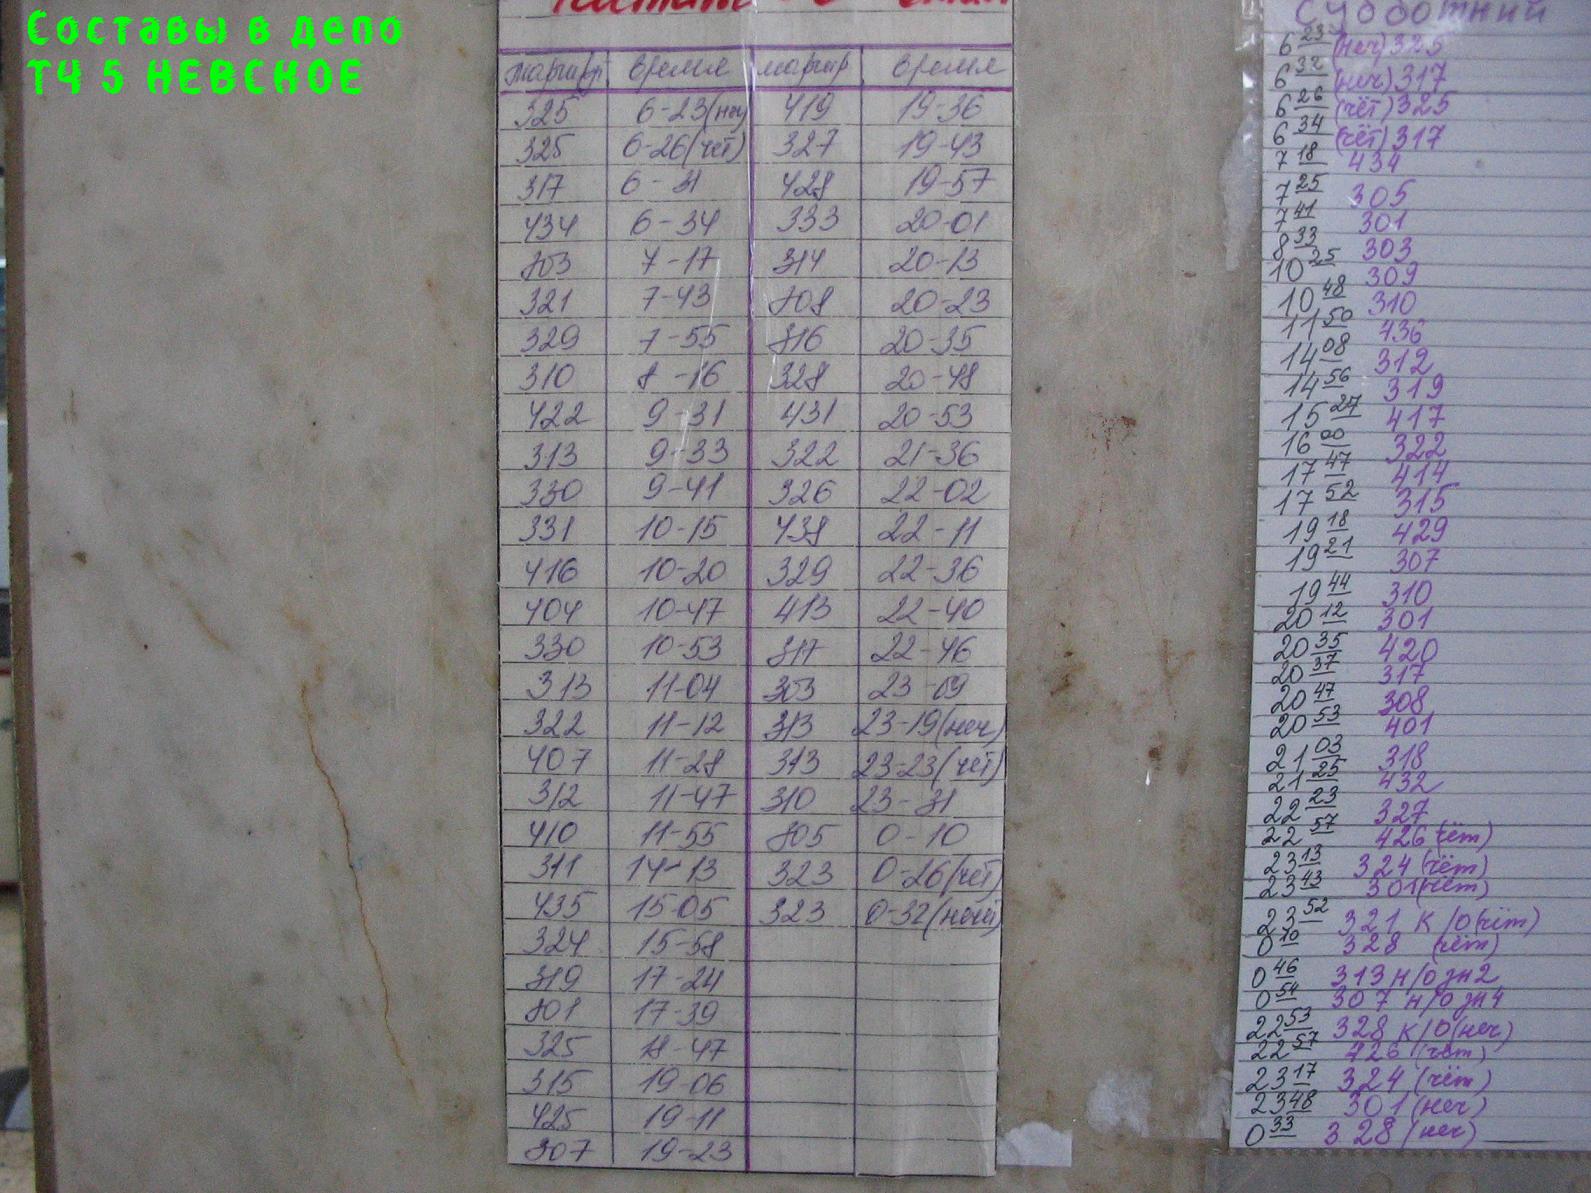 Составы в депо
ТЧ 5 НЕВСКОЕ
маршрут время маршр время
325 6-23(неч) 419 19-36
325 6-26(чёт) 327 19-43
317 6-31 428 19-57
434 6-34 333 20-01
303 7-17 314 20-13
321 7-43 308 20-23
329 7-55 316 20-35
310 8-16 328 20-48
422 9-31 431 20-53
313 9-33 322 21-36
330 9-41 326 22-02
331 10-15 438 22-11
416 10-20 329 22-36
404 10-47 413 22-40
330 10-53 317 22-46
313 11-04 303 23-09
322 11-12 313 23-19(неч)
407 11-28 313 23-23(чёт)
312 11-47 310 23-31
410 11-55 305 0-10
311 14-13 323 0-26(чёт)
435 15-05 323 0-32(нечёт)
324 15-58
319 17-24
301 17-39
325 18-47
315 19-06
425 19-11
307 19-23
Субботний
6 23 (неч) 325
6 32 (неч) 317
6 26 (чёт) 325
6 34 (чёт) 317
7 18 434
7 25 305
7 41 301
8 33 303
10 25 309
10 48 310
11 50 436
14 08 312
14 56 319
15 27 417
16 00 322
17 47 414
17 52 315
19 18 429
19 21 307
19 44 310
20 12 301
20 35 420
20 37 317
20 47 308
20 53 401
21 03 318
21 25 432
22 23 327
22 57 426 (чёт)
23 13 324 (чёт)
23 43 301 (чёт)
23 52 321 к/о (чёт)
0 10 328 (чёт)
0 46 313 н/о зн2
0 54 307 н/о зн4
22 53 328 к/о (неч)
22 57 426 (чёт)
23 17 324 (чёт)
23 48 301 (неч)
0 33 328 (неч)